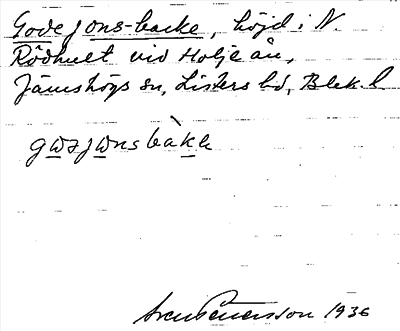 Gode Jons-backe, höjd i N.
Rödhult vid Holje ån,
Jämshögs sn, Listers hd, Blek. l
gωsjωnsbàkk
Sven Benson 1936